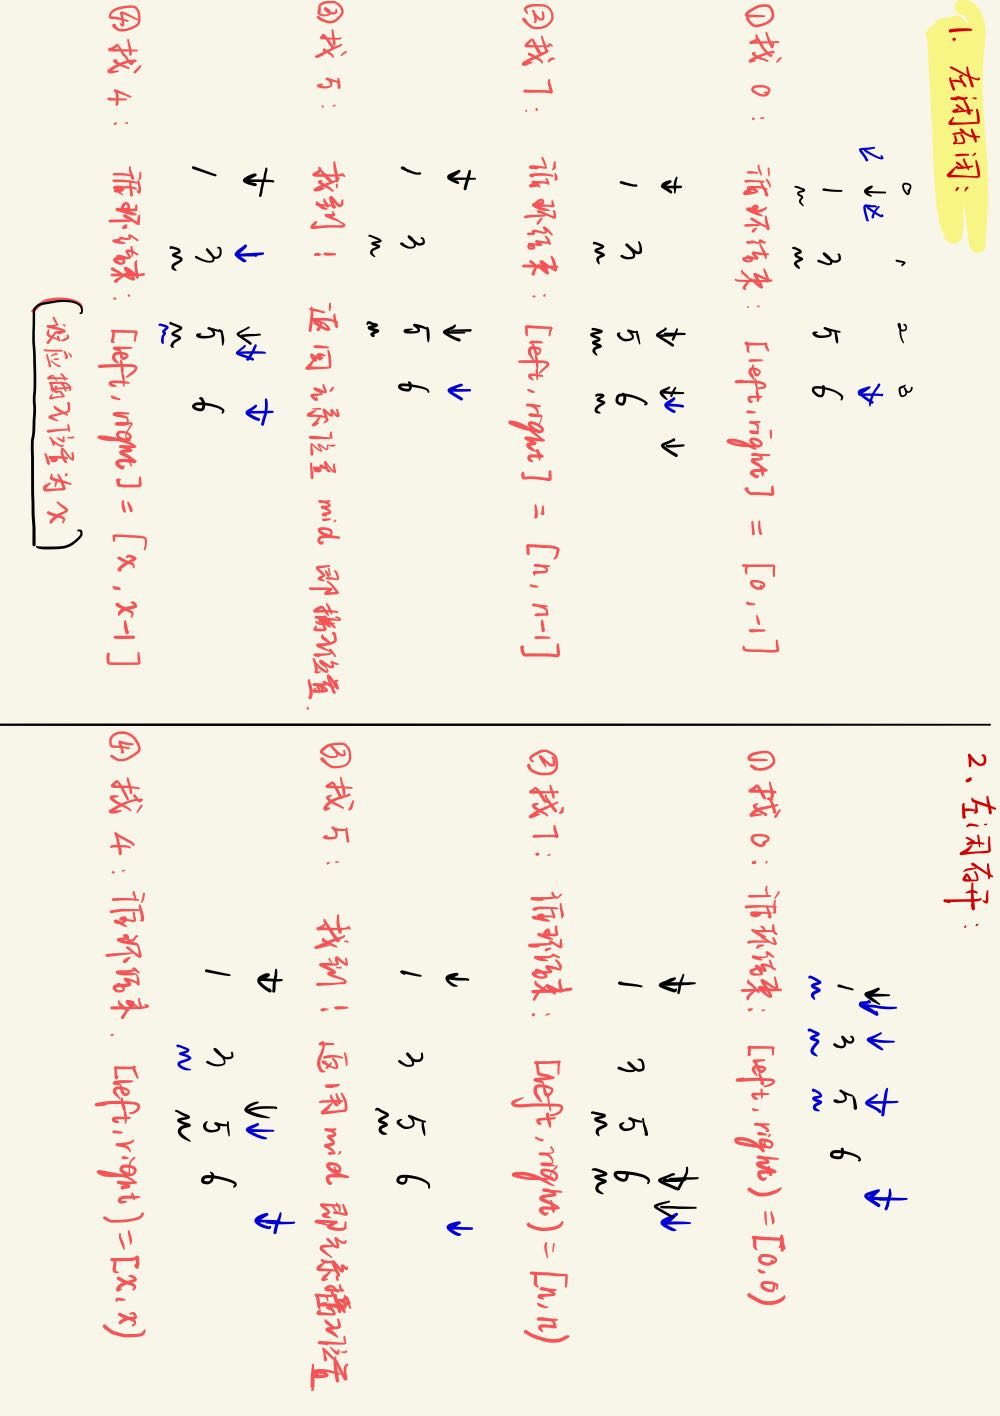 1. 左闭右闭:
0 1 2 3
1 3 5 6
m m
①找 0: 循环结束: [left,right] = [0,-1]
1 3 5 6
m m m
②找7: 循环结束: [left,right] = [n,n-1]
1 3 5 6
m m
③找 5: 找到! 返回元素位置 mid 即插入位置.
1 3 5 6
m m m
④找 4: 循环结束: [left,right] = [x,x-1]
设应插入位置为x
2、左闭右开:
1 3 5 6
m m m
①找 0: 循环结束: [left,right) = [0,0)
1 3 5 6
m m
②找7: 循环结束: [left,right) = [n,n)
1 3 5 6
m
③找 5: 找到! 返回 mid 即元素插入位置
1 3 5 6
m m
④找 4: 循环结束. [left,right) = [x,x)